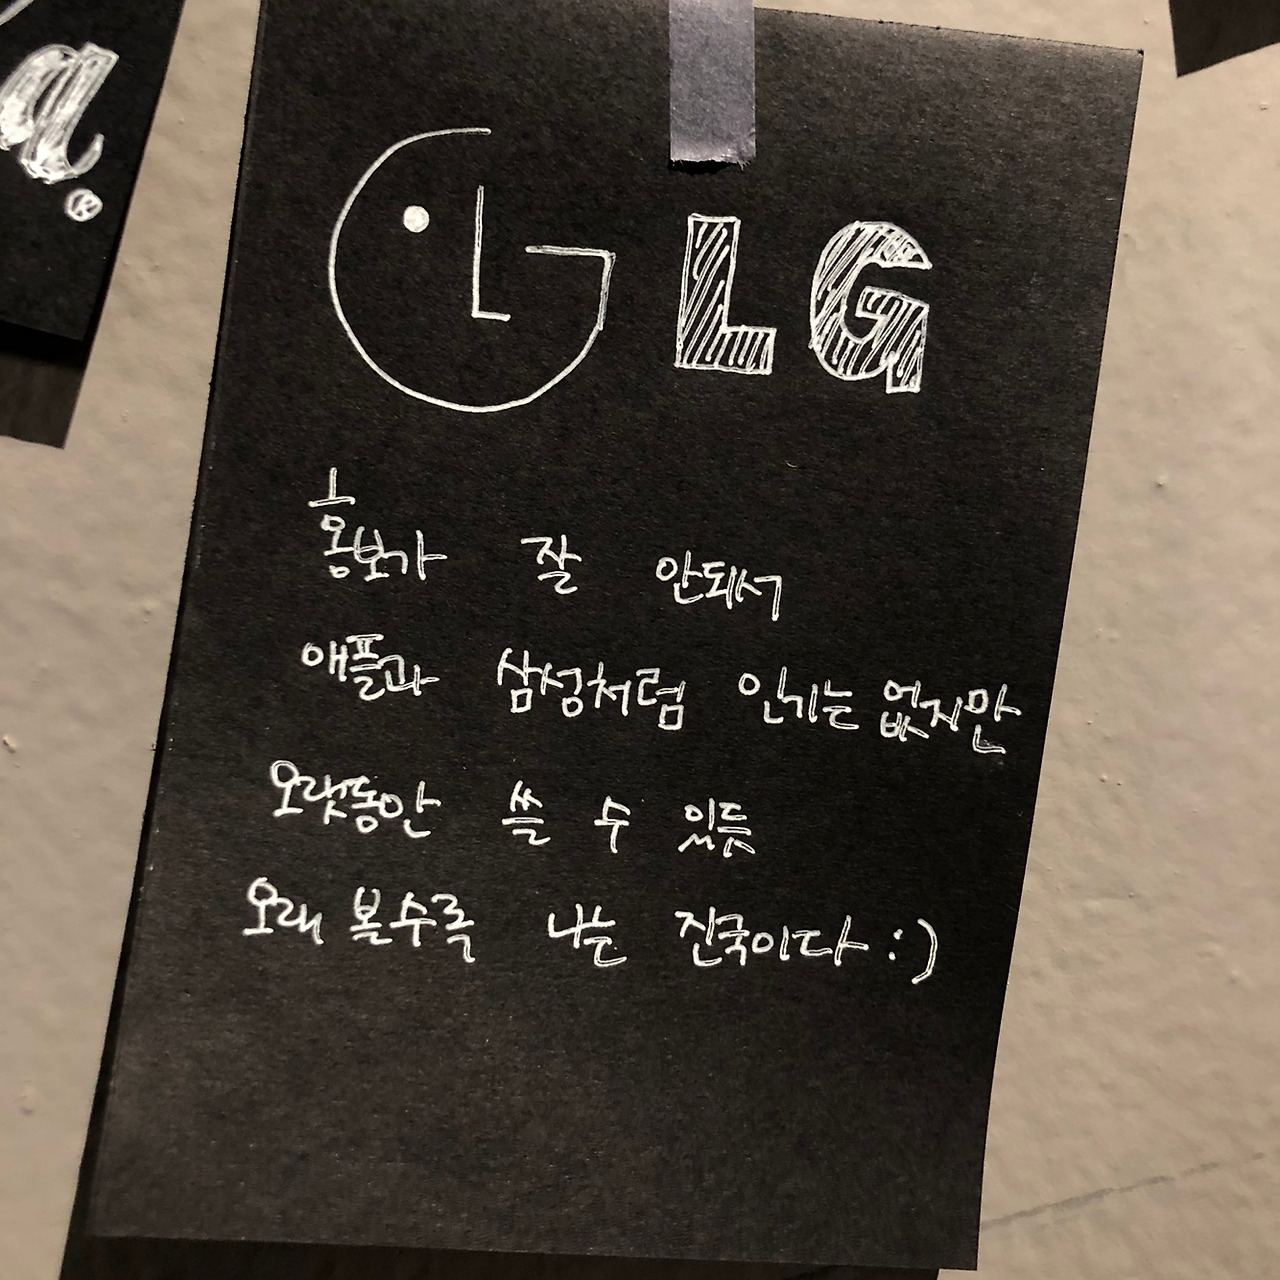 a.®
LG
홍보가 잘 안돼서
애플과 삼성처럼 인기는 없지만
오랫동안 쓸 수 있듯
오래 볼수록 나는 진국이다 :)